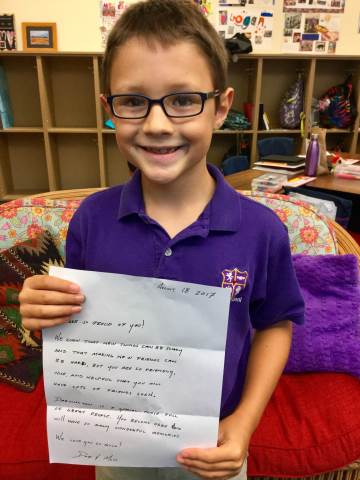 Logan
August 18 2017
We're so proud of you!
We know that new things can be scary
and that making new friends can
be hard. But you are so friendly,
nice and helpful that you will
have lots of friends soon.
is a special place full
of great people. You
will have so many wonderful memories
We love you so much!
Dad & Mom